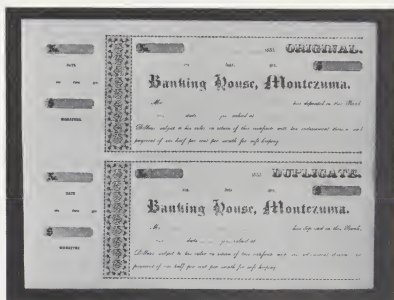 No. No. 185 ORIGINAL.
DATE
ozs. dwts. grs. ozs. dwts. grs. $
$ Banking House, Montezuma.
SIGNATURE
Mr. has deposited in this Bank,
ozs. dwts. grs. valued at
Dollars subject to his order on return of this certificate with his endorsement thereon and
payment of one half per cent per month for safe keeping
No. No. 185 DUPLICATE.
DATE
ozs. dwts. grs. $
$ Banking House, Montezuma.
SIGNATURE
Mr. has deposited in this Bank,
ozs. dwts. grs. valued at
Dollars subject to his order on return of this certificate with his endorsement thereon and
payment of one half per cent per month for safe keeping